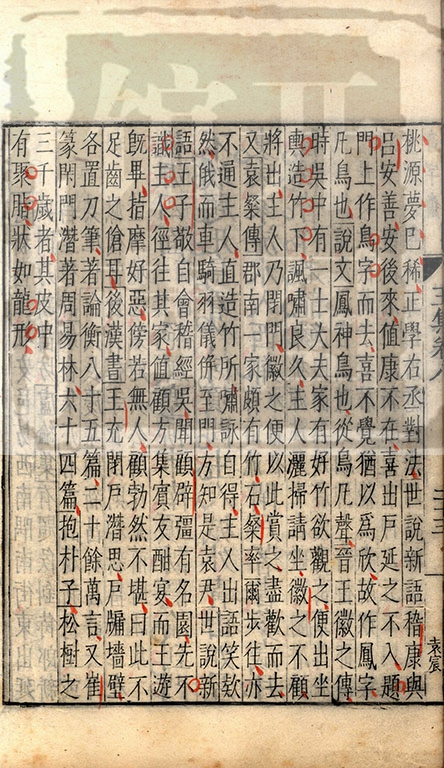 桃源夢已稀正學右丞對法世說新語稽康與
吕安善安後來值康不在喜出戸延之不入題
門上作鳥字而去喜不覺猶以爲欣故作鳳字
凡鳥也說文鳳神鳥也從鳥凡聲晉王徽之傳
時吳中有一士大夫家有好竹欲觀之便出坐
輿造竹下諷嘯良久主人灑掃請坐徽之不顧
將出主人乃閉門徽之便以此賞之盡歡而去
又袁粲傳郡南一家頗有竹石粲率爾步往亦
不通主人直造竹所嘯詠自得主人出語笑欵
然俄而車騎羽儀併至門方知是袁尹世說新
語王子敬自會稽經吳聞顧辟彊有名園先不
識主人徑往其家值顧方集賓友酣宴而王遊
旣畢指摩好惡傍若無人顧勃然不堪曰此不
足齒之傖耳後漢書王充閉戸潛思戸牖墻壁
各置刀筆著論衡八十五篇二十餘萬言又崔
篆閉門潛著周易林六十四篇抱朴子松樹之
三千歲者其皮中
有聚脂狀如龍形
袁宸